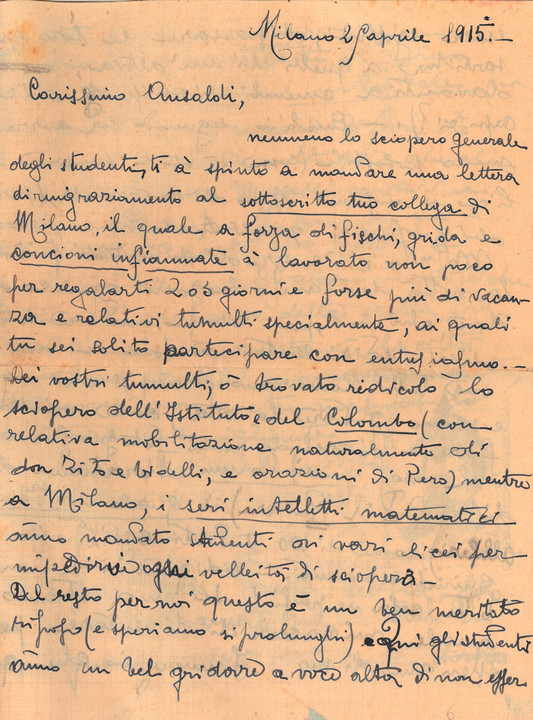 Milano 2 aprile 1915.-
Carissimo Ansaldi,
nemmeno lo sciopero generale
degli studenti, ti à spinto a mandare una lettera
di ringraziamento al sottoscritto tuo collega di
Milano, il quale a forza di fischi, grida e
concioni infiammate à lavorato non poco
per regalarti 2 o 3 giorni e forse più di vacan-
za e relativi tumulti specialmente, ai quali
tu sei solito partecipare con entusiasmo.-
Dei vostri tumulti, ò trovato ridicolo lo
sciopero dell'Istituto e del Colombo (con
relativa mobilitazione naturalmente di
don Zito e bidelli, e orazioni di Pero) mentre
a Milano, i seri intelletti matematici
ànno mandato studenti ai varii licei per
impedirvi ogni velleità di sciopero-
Del resto per noi questo è un ben meritato
riposo (e speriamo si prolunghi) e qui gli studenti
ànno un bel gridare a voce alta di non esser